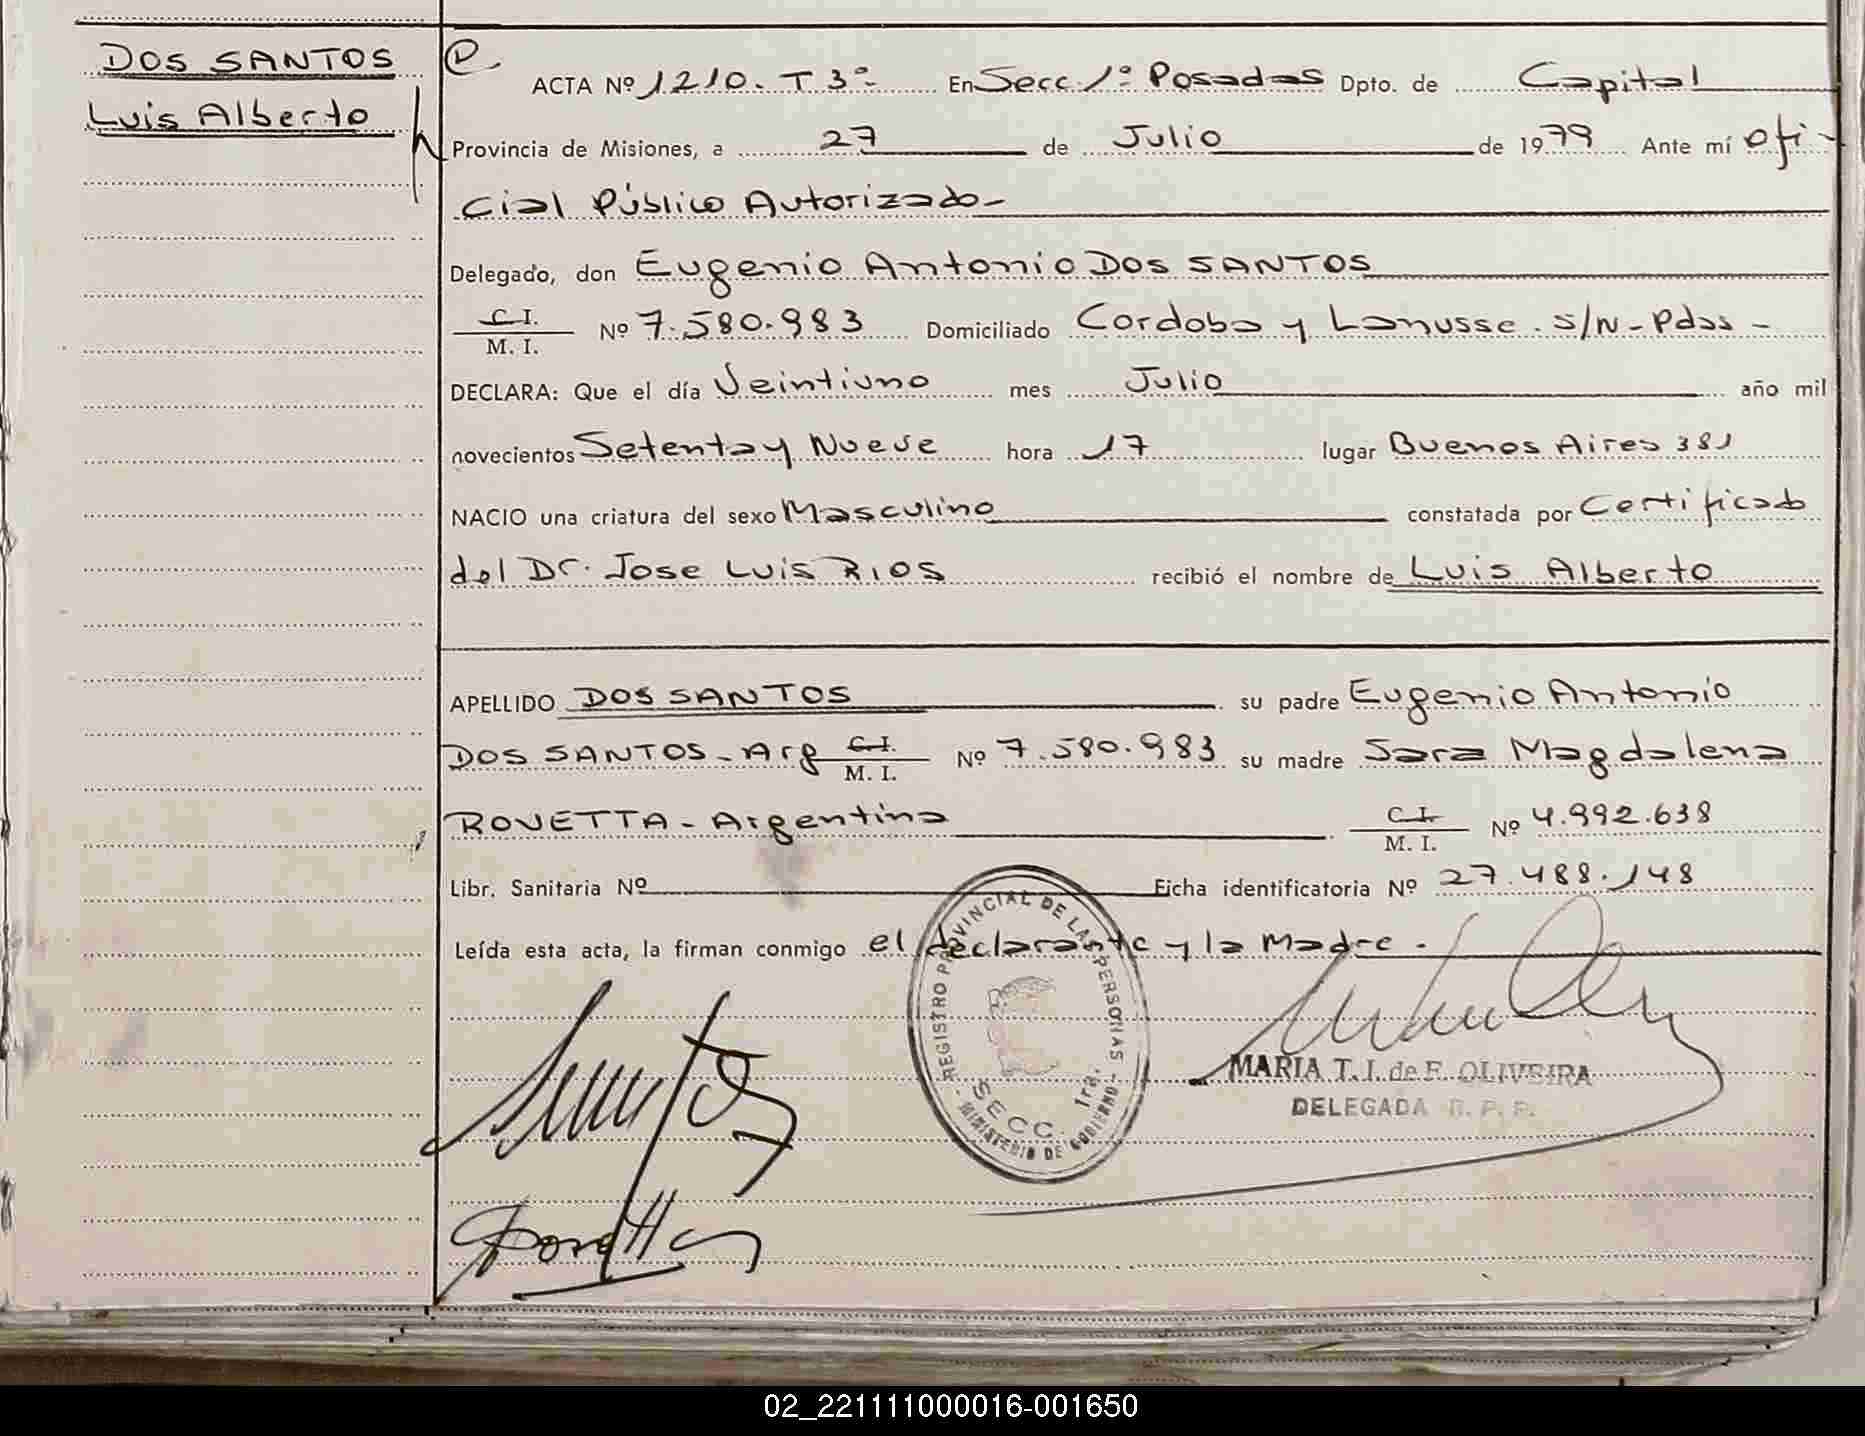 DOS SANTOS
Luis Alberto
ACTA Nº 1210. T 3º- En Secc. 1º Posadas Dpto. de Capital
Provincia de Misiones, a 27 de Julio de 1979 Ante mí ofi-
cial Público Autorizado-
Delegado, don Eugenio Antonio DOS SANTOS
C.I. M. I. Nº 7.580.983 Domiciliado Cordoba y Lanusse. s/n-Pdas-
DECLARA: Que el día Veintiuno mes Julio año mil
novecientos Setenta y Nueve hora 17 lugar Buenos Aires 381
NACIO una criatura del sexo Masculino constatada por Certificado
del Dr. Jose Luis RIOS recibió el nombre de Luis Alberto
APELLIDO DOS SANTOS su padre Eugenio Antonio
DOS SANTOS-Arg C.I. M. I. Nº 7.580.983 su madre Sara Magdalena
ROVETTA-Argentina C.I. M. I. Nº 4.992.638
Libr. Sanitaria Nº Ficha identificatoria Nº 27.488.148
Leída esta acta, la firman conmigo el declarante y la Madre.
REGISTRO PROVINCIAL DE LAS PERSONAS
SECC. 1ra.
MINISTERIO DE GOBIERNO
MARIA T. I. de F. OLIVEIRA
DELEGADA R. P. P.
02_221111000016-001650